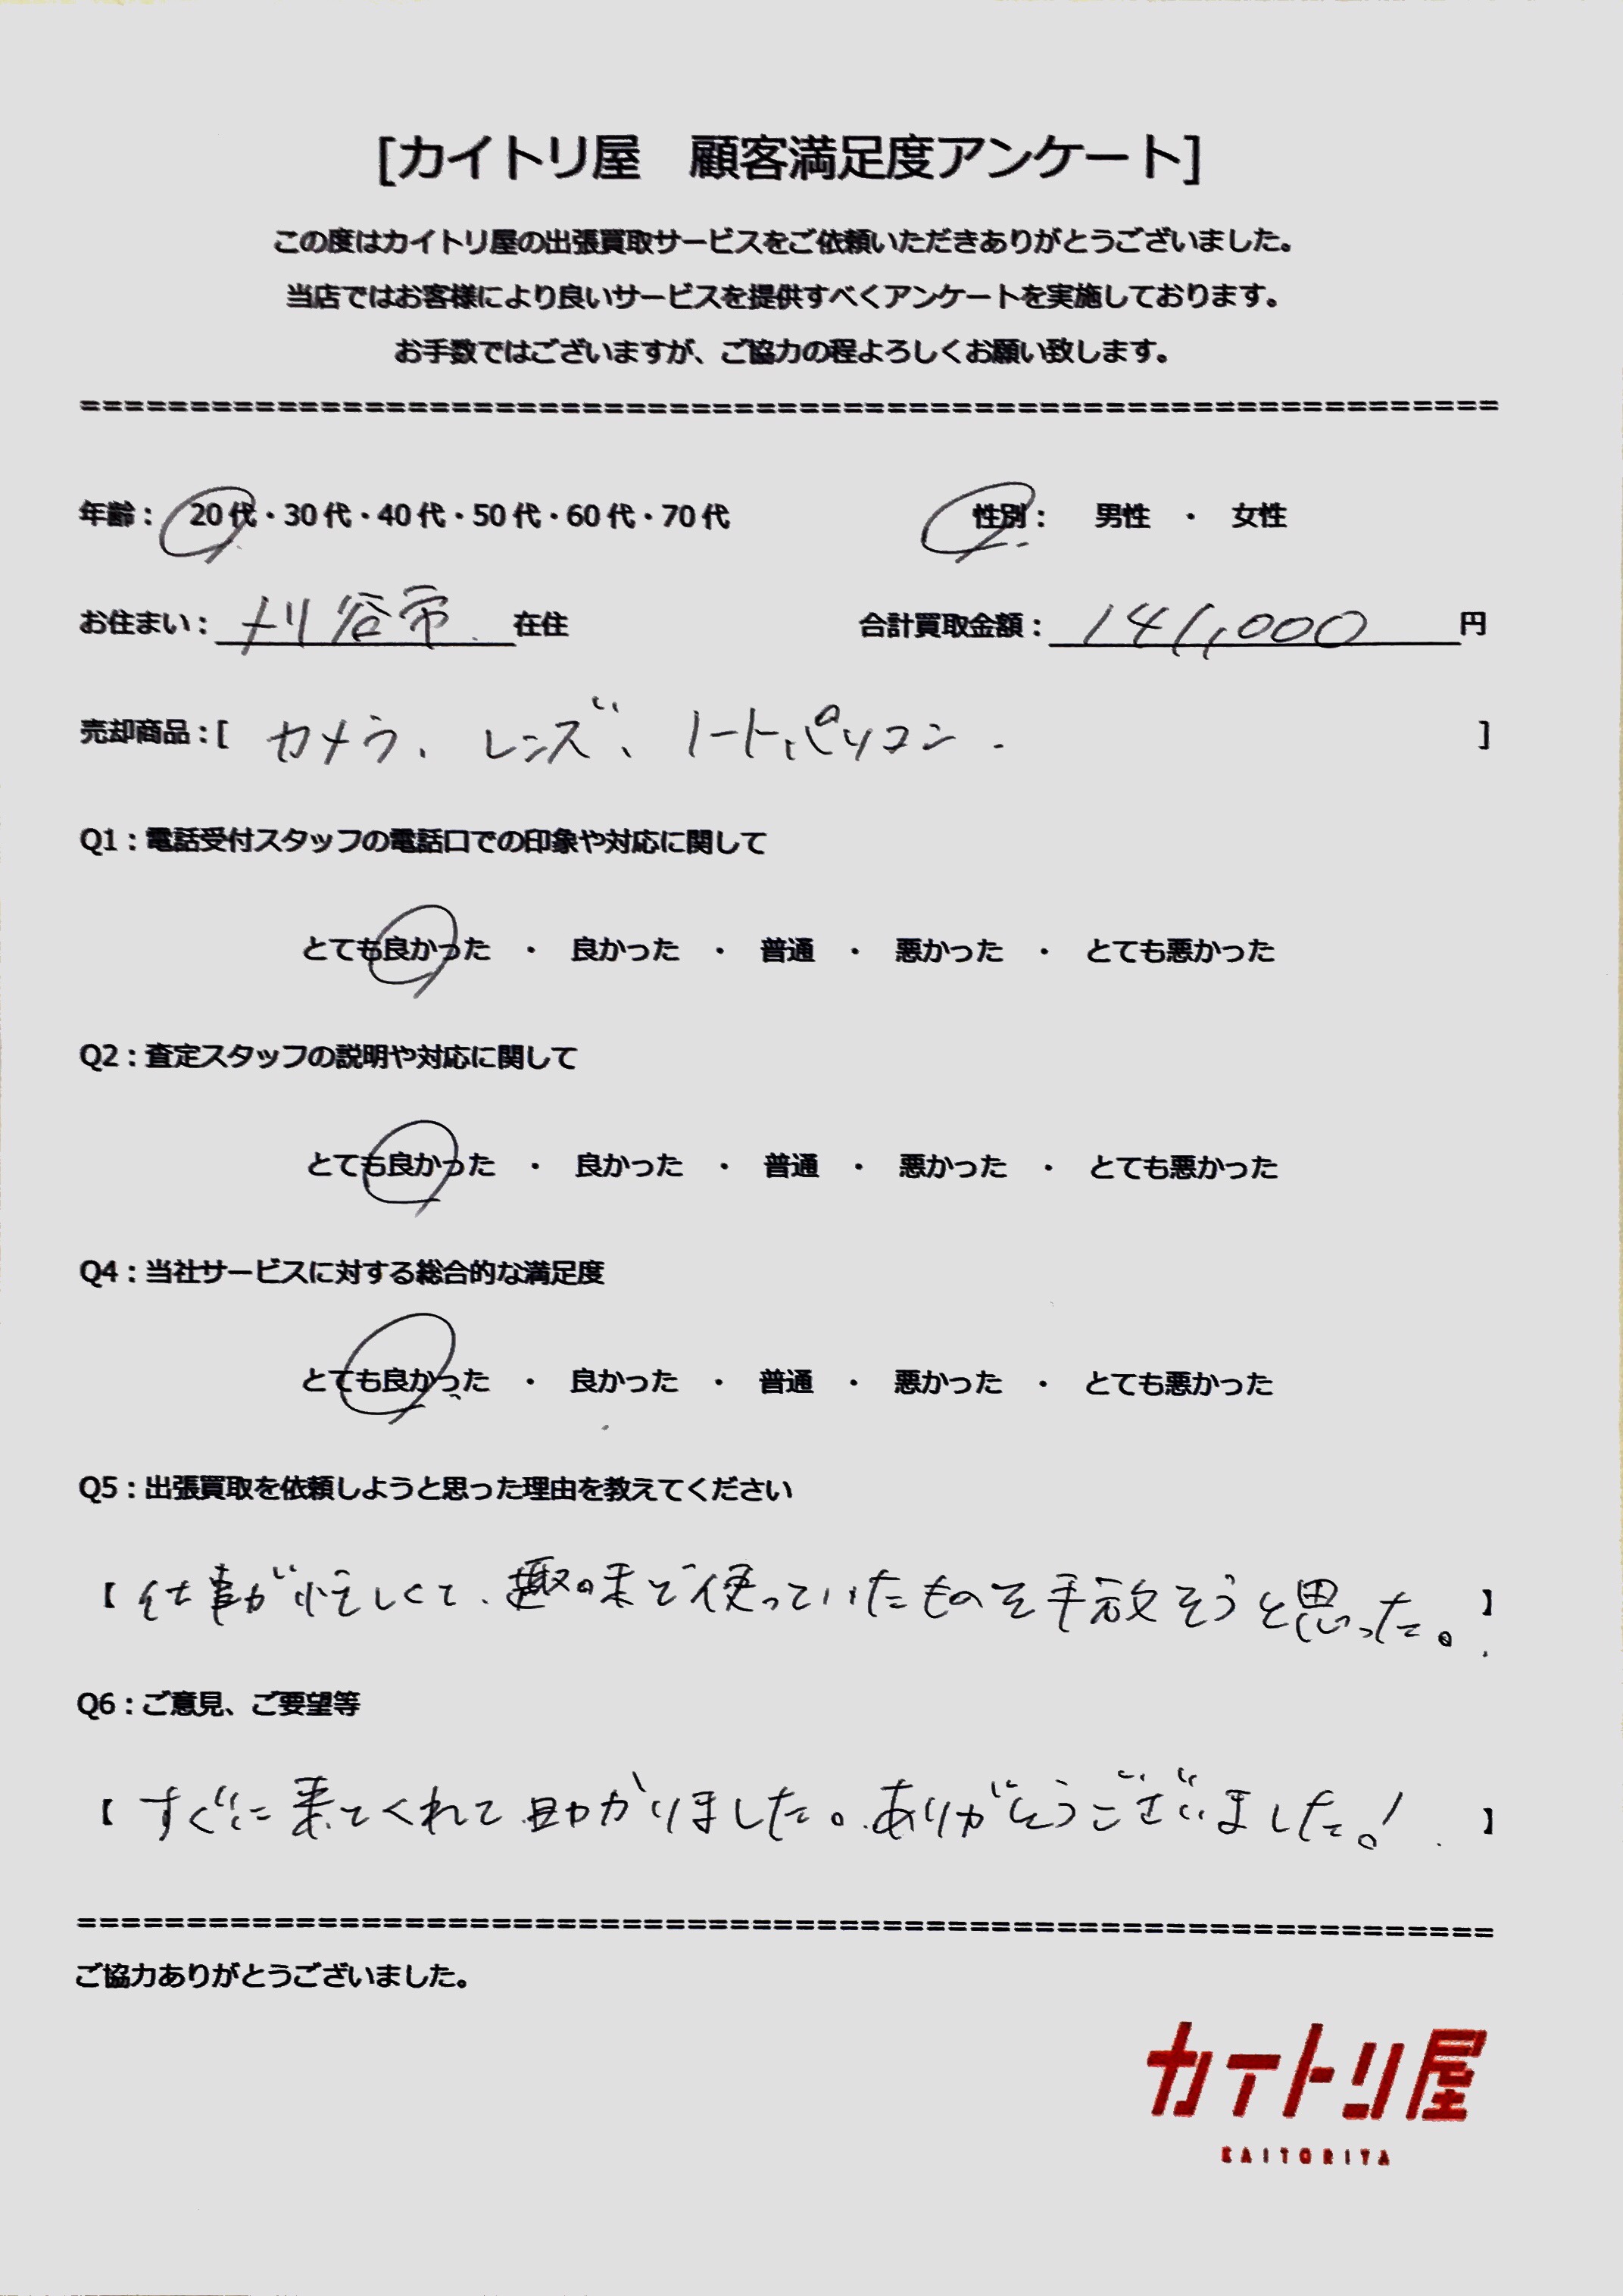 [カイトリ屋　顧客満足度アンケート]
この度はカイトリ屋の出張買取サービスをご依頼いただきありがとうございました。
当店ではお客様により良いサービスを提供すべくアンケートを実施しております。
お手数ではございますが、ご協力の程よろしくお願い致します。
================================================================
年齢： 20代・30代・40代・50代・60代・70代 性別： 男性 ・ 女性
お住まい： 刈谷市 在住 合計買取金額： 141,000 円
売却商品：[ カメラ、レンズ、ノートパソコン ]
Q1：電話受付スタッフの電話口での印象や対応に関して
とても良かった ・ 良かった ・ 普通 ・ 悪かった ・ とても悪かった
Q2：査定スタッフの説明や対応に関して
とても良かった ・ 良かった ・ 普通 ・ 悪かった ・ とても悪かった
Q4：当社サービスに対する総合的な満足度
とても良かった ・ 良かった ・ 普通 ・ 悪かった ・ とても悪かった
Q5：出張買取を依頼しようと思った理由を教えてください
【 仕事が忙しくて、趣味で使っていたものを手放そうと思った。 】
Q6：ご意見、ご要望等
【 すぐに来てくれて助かりました。ありがとうございました。! 】
================================================================
ご協力ありがとうございました。
カイトリ屋
KAITORIYA